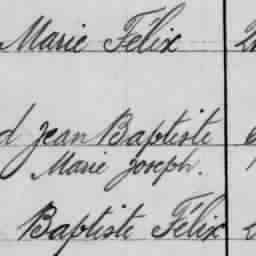 Marie Félix
d Jean Baptiste
Marie Joseph.
Baptiste Félix